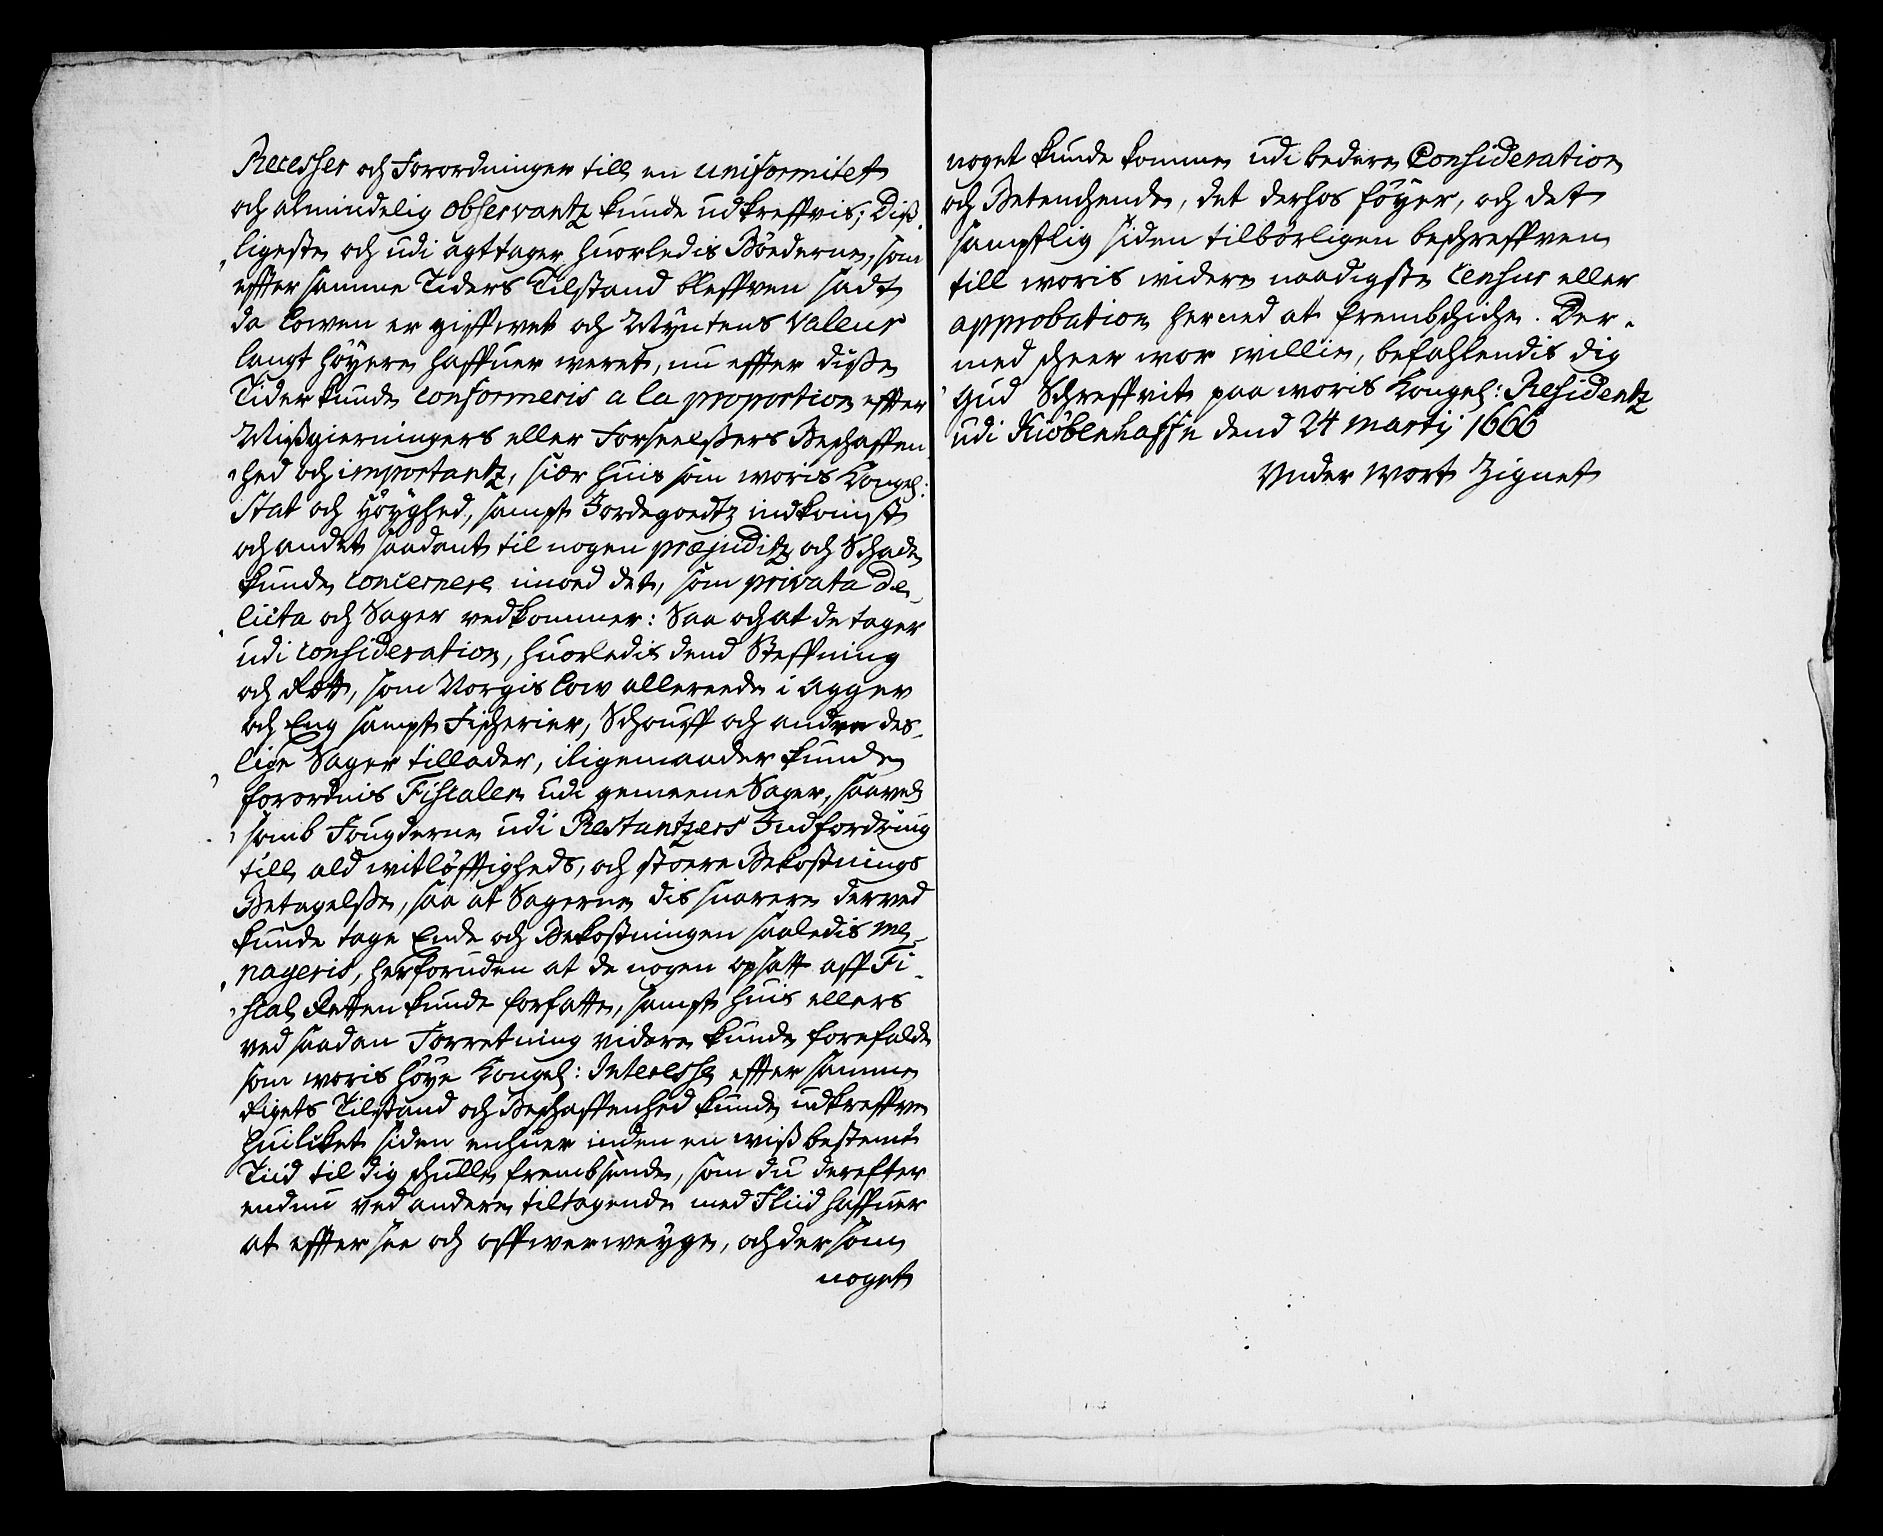 Recesser och Forordninger till en uniformitet
och almindelig observantz kunde udkreffvis; Diß
ligeste och udi agttager huorledis Bøederne, som
effter samme Tiders Tilstand bleffven sadt
da Lowen er giffwet och Myntens Valeur
langt høyere haffuer weret, nu effter disse
Tider kunde conformeris a la proportion effter
Mißgierningers eller Forseelßers Beschaffen
hed och importantz, siær huis som woris Kongel:
Stat och Høyghed, sampt Jordegoedtz indkomst
och andet saadant til nogen præjuditz och Schade
kunde concernere imoed det, som privata De
licta och Sager vedkommer: Saa och at de tager
udi consideration, huorledis dend Steffning
och Rett, som Norgis Low allereede i Agger
och Eng sampt Fischerier, Schouff och andre des
lige Sager tillader, iligemaader kunde
forordnis Fiscalen udi gemeene Sager, saavel
somb Fougderne udi Restantzers Indfordring
till ald witløfftigheds, och stoere Bekostnings
Betagelße, saa at Sagerne dis snarere derved
kunde tage Ende och Bekostningen saaledis me
nageris, herforuden at de nogen opsatt aff Fi
scal Retten kunde forfatte, sampt huis ellers
ved saadan Forretning videre kunde forefalde
som woris høye Kongel: Interesse effter samme
Rigets Tilstand och Beschaffenhed kunde udkreffve
huilcket siden enhuer inden en wiß bestemt
Tiid til dig schulle frembsende, som du derefter
endnu ved andere tiltagende med Fliid haffuer
at effter see och offwerweyge, och dersom
noget
noget kunde komme udi bedere Consideration
och Betenchende, det derhos føyer, och det
samptlig siden tilbørligen beschreffven
till woris widere naadigste Census eller
approbation herned at frembschiche. Der
med scheer wor willie, befahlendis dig
Gud Schreffvit paa woris Kongel: Residentz
udi Kiöbenhaffn dend 24 Martij 1666
Vnder Wort Zignet